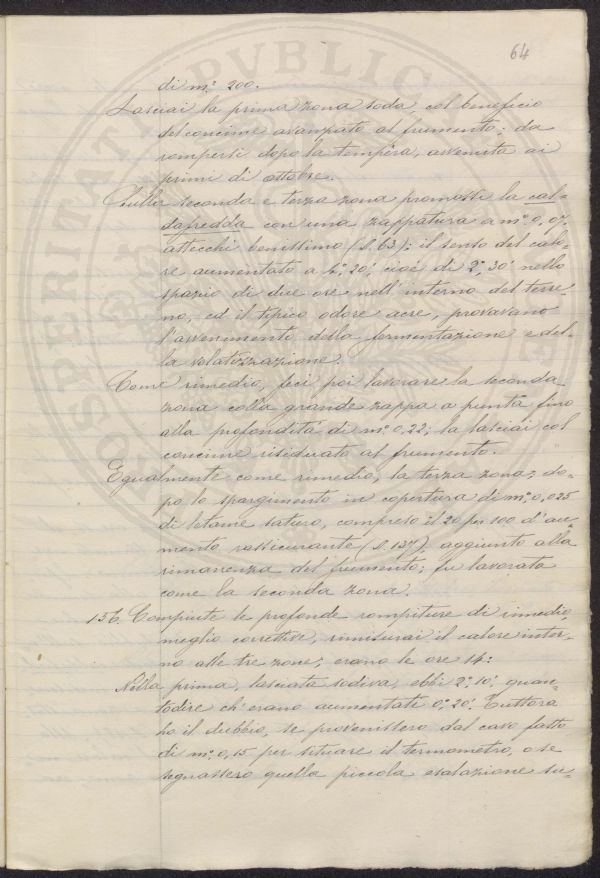 64
di m.° 200.
Lasciai la prima zona soda col beneficio
del concime avanzato al frumento; da
romperti dopo la tempèra, avvenuta ai
primi di ottobre.
Sulla seconda e terza zona promossi la cal-
dafredda con una zappatura a m.° 0,07,
attecchì benissimo (§. 63); il senso del calo-
re aumentato a 4.° 20', cioè di 2.° 30' nello
spazio di due ore nell'interno del terre-
no, ed il tipico odore acre, provavano
l'avvenimento della fermentazione e del-
la volatizzazione.
Come rimedio, feci poi lavorare la seconda
zona colla grande zappa a punta fino
alla profondità di m.° 0,22; la lasciai col
concime risiduato al frumento.
Egualmente come rimedio, la terza zona; do-
po lo spargimento in copertura di m.° 0,025
di letame saturo, compreso il 20 per 100 d'au-
mento rassicurante (§. 137), aggiunto alla
rimanenza del frumento; fu lavorata
come la seconda zona.
156. Compiute le profonde rompiture di rimedio,
meglio correttive, rimisurai il calore inter-
no alle tre zone; erano le ore 14:
Nella prima, lasciata sodiva, ebbi 2.° 10' quan-
todire ch'erano aumentati 0.° 20'. Tuttora
ho il dubbio, se provenissero dal cavo fatto
di m.° 0,15 per situare il termometro, o se
segnassero quella piccola esalazione su-
PROSPERITATI PVBLICAE